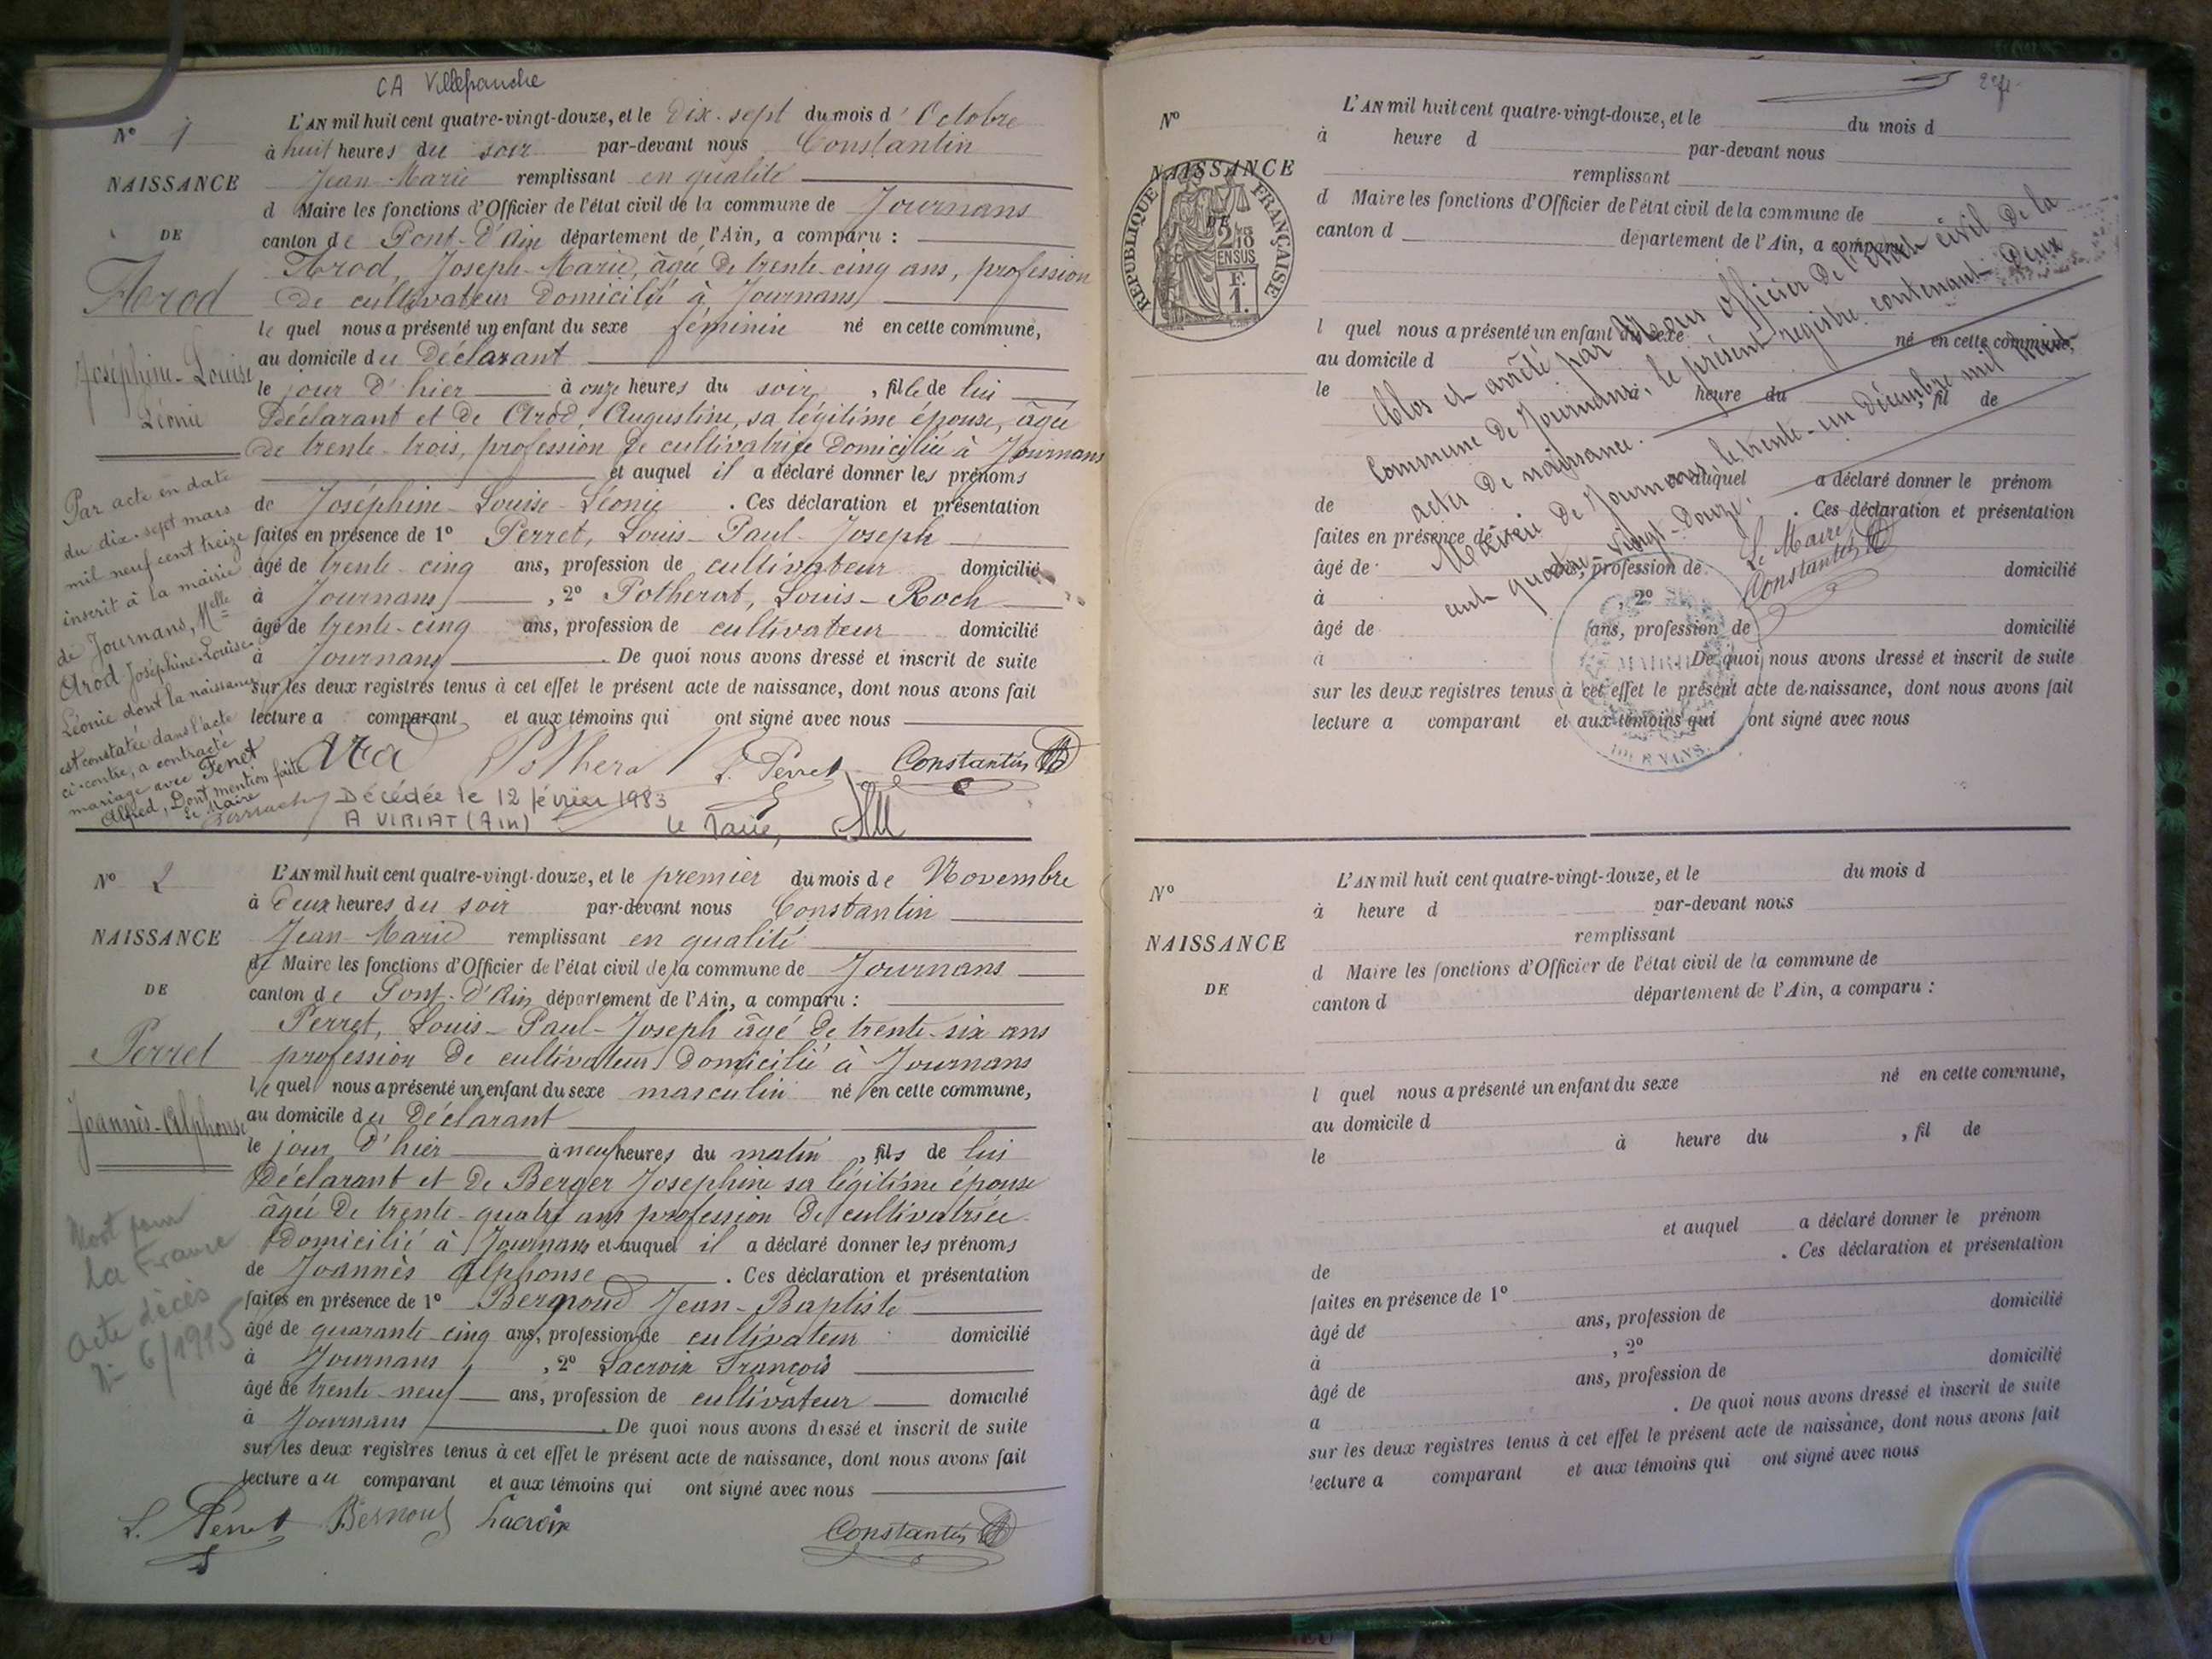 CA Villefranche
Nº 1
NAISSANCE
DE
Arod
Joséphine-Louise
Léonie
L'AN mil huit cent quatre-vingt-douze, et le dix-sept du mois d'Octobre
à huit heures du soir par-devant nous Constantin
Jean-Marie remplissant en qualité
d Maire les fonctions d'Officier de l'état civil de la commune de Journans
canton de Pont-d'Ain département de l'Ain, a comparu :
Arod, Joseph-Marie, âgé de trente-cinq ans, profession
de cultivateur domicilié à Journans
lequel nous a présenté un enfant du sexe féminin né en cette commune,
au domicile du Déclarant
le jour d'hier à onze heures du soir, fille de lui
Déclarant et de Arod, Augustine, sa légitime épouse, âgée
de trente-trois, profession de cultivatrice domiciliée à Journans
et auquel il a déclaré donner les prénoms
de Joséphine-Louise-Léonie. Ces déclaration et présentation
faites en présence de 1º Perret, Louis-Paul-Joseph
âgé de trente-cinq ans, profession de cultivateur domicilié
à Journans, 2º Potherat, Louis-Roch
âgé de trente-cinq ans, profession de cultivateur domicilié
à Journans. De quoi nous avons dressé et inscrit de suite
sur les deux registres tenus à cet effet le présent acte de naissance, dont nous avons fait
lecture a comparant et aux témoins qui ont signé avec nous
Potherat L. Perret Constantin
Par acte en date
du dix-sept mars
mil neuf cent treize
inscrit à la mairie
de Journans, Melle
Arod Joséphine-Louise-
Léonie dont la naissance
est constatée dans l'acte
ci-contre, a contracté
mariage avec Fenet
Alfred, Dont mention faite
Le Maire
Décédée le 12 février 1983
A VIRIAT (Ain) Le Maire,
Nº 2
NAISSANCE
DE
Perret
Joannès-Alphonse
L'AN mil huit cent quatre-vingt-douze, et le premier du mois de Novembre
à deux heures du soir par-devant nous Constantin
Jean-Marie remplissant en qualité
de Maire les fonctions d'Officier de l'état civil de la commune de Journans
canton de Pont-d'Ain département de l'Ain, a comparu :
Perret, Louis-Paul-Joseph âgé de trente-six ans
profession de cultivateur domicilié à Journans
lequel nous a présenté un enfant du sexe masculin né en cette commune,
au domicile du Déclarant
le jour d'hier à neuf heures du matin, fils de lui
Déclarant et de Berger Josephine sa légitime épouse
âgée de trente-quatre ans profession de cultivatrice
domicilié à Journans et auquel il a déclaré donner les prénoms
de Joannès Alphonse. Ces déclaration et présentation
faites en présence de 1º Bernoud Jean-Baptiste
âgé de quarante-cinq ans, profession de cultivateur domicilié
à Journans, 2º Lacroix François
âgé de trente-neuf ans, profession de cultivateur domicilié
à Journans. De quoi nous avons dressé et inscrit de suite
sur les deux registres tenus à cet effet le présent acte de naissance, dont nous avons fait
lecture au comparant et aux témoins qui ont signé avec nous
L. Perret Bernoud Lacroix Constantin
Mort pour
la France
Acte décès
6/1915
Nº
NAISSANCE
DE
RÉPUBLIQUE FRANÇAISE
2/10 EN SUS
F.
1.
L'AN mil huit cent quatre-vingt-douze, et le du mois d
à heure d par-devant nous
remplissant
d Maire les fonctions d'Officier de l'état civil de la commune de
canton d département de l'Ain, a comparu
l quel nous a présenté un enfant du sexe né en cette commune,
au domicile d
le heure du fil de
auquel a déclaré donner le prénom
de . Ces déclaration et présentation
faites en présence de
âgé de ans, profession de domicilié
à , 2º
âgé de ans, profession de domicilié
à De quoi nous avons dressé et inscrit de suite
sur les deux registres tenus à cet effet le présent acte de naissance, dont nous avons fait
lecture a comparant et aux témoins qui ont signé avec nous
Clos et arrêté par Nous Officier de l'état civil de la
Commune de Journans, le présent registre contenant deux
actes de naissance.
Mairie de Journans le trente-un décembre mil huit
cent quatre-vingt-douze.
Le Maire
Constantin
MAIRIE
JOURNANS
Nº
NAISSANCE
DE
L'AN mil huit cent quatre-vingt-douze, et le du mois d
à heure d par-devant nous
remplissant
d Maire les fonctions d'Officier de l'état civil de la commune de
canton d département de l'Ain, a comparu :
l quel nous a présenté un enfant du sexe né en cette commune,
au domicile d
le à heure du , fil de
et auquel a déclaré donner le prénom
de . Ces déclaration et présentation
faites en présence de 1º
âgé de ans, profession de domicilié
à , 2º
âgé de ans, profession de domicilié
a . De quoi nous avons dressé et inscrit de suite
sur les deux registres tenus à cet effet le présent acte de naissance, dont nous avons fait
lecture a comparant et aux témoins qui ont signé avec nous